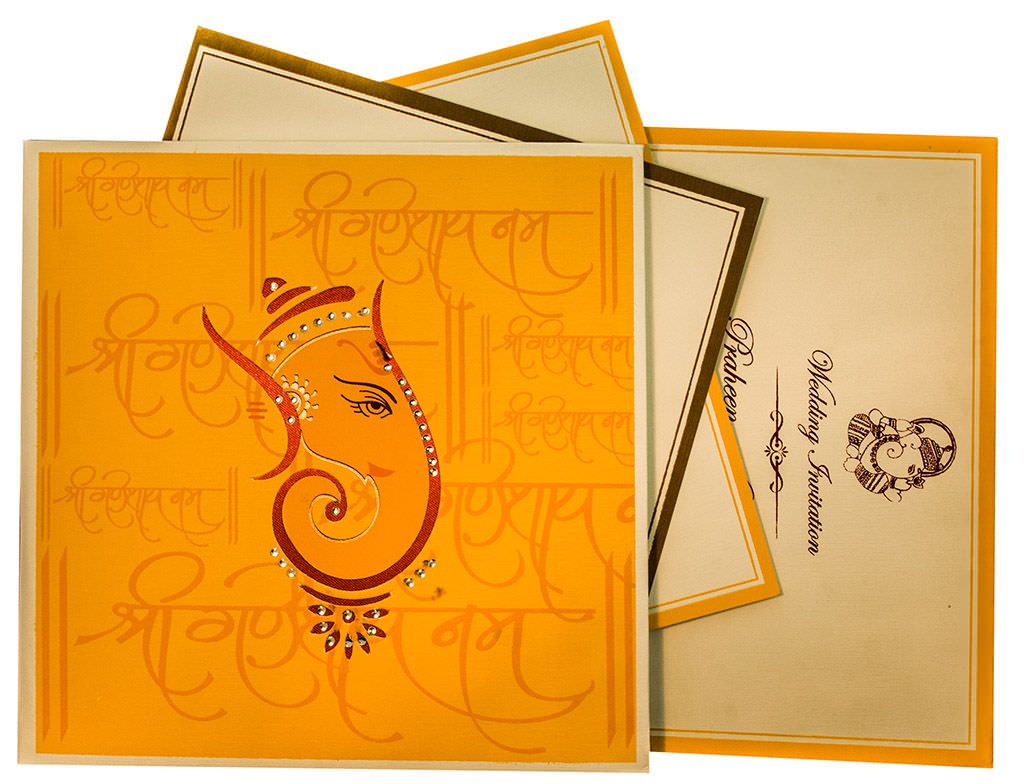 ॥ श्री गणेशाय नम ॥
॥ श्री गणेशाय नम ॥
॥ श्री गणेशाय
॥ श्री गणेशाय नम
॥ श्री गणेशाय नम
॥ श्री गणेशाय नम ॥
श्री गणेशाय
॥ श्री गणेशाय नम ॥
Wedding Invitation